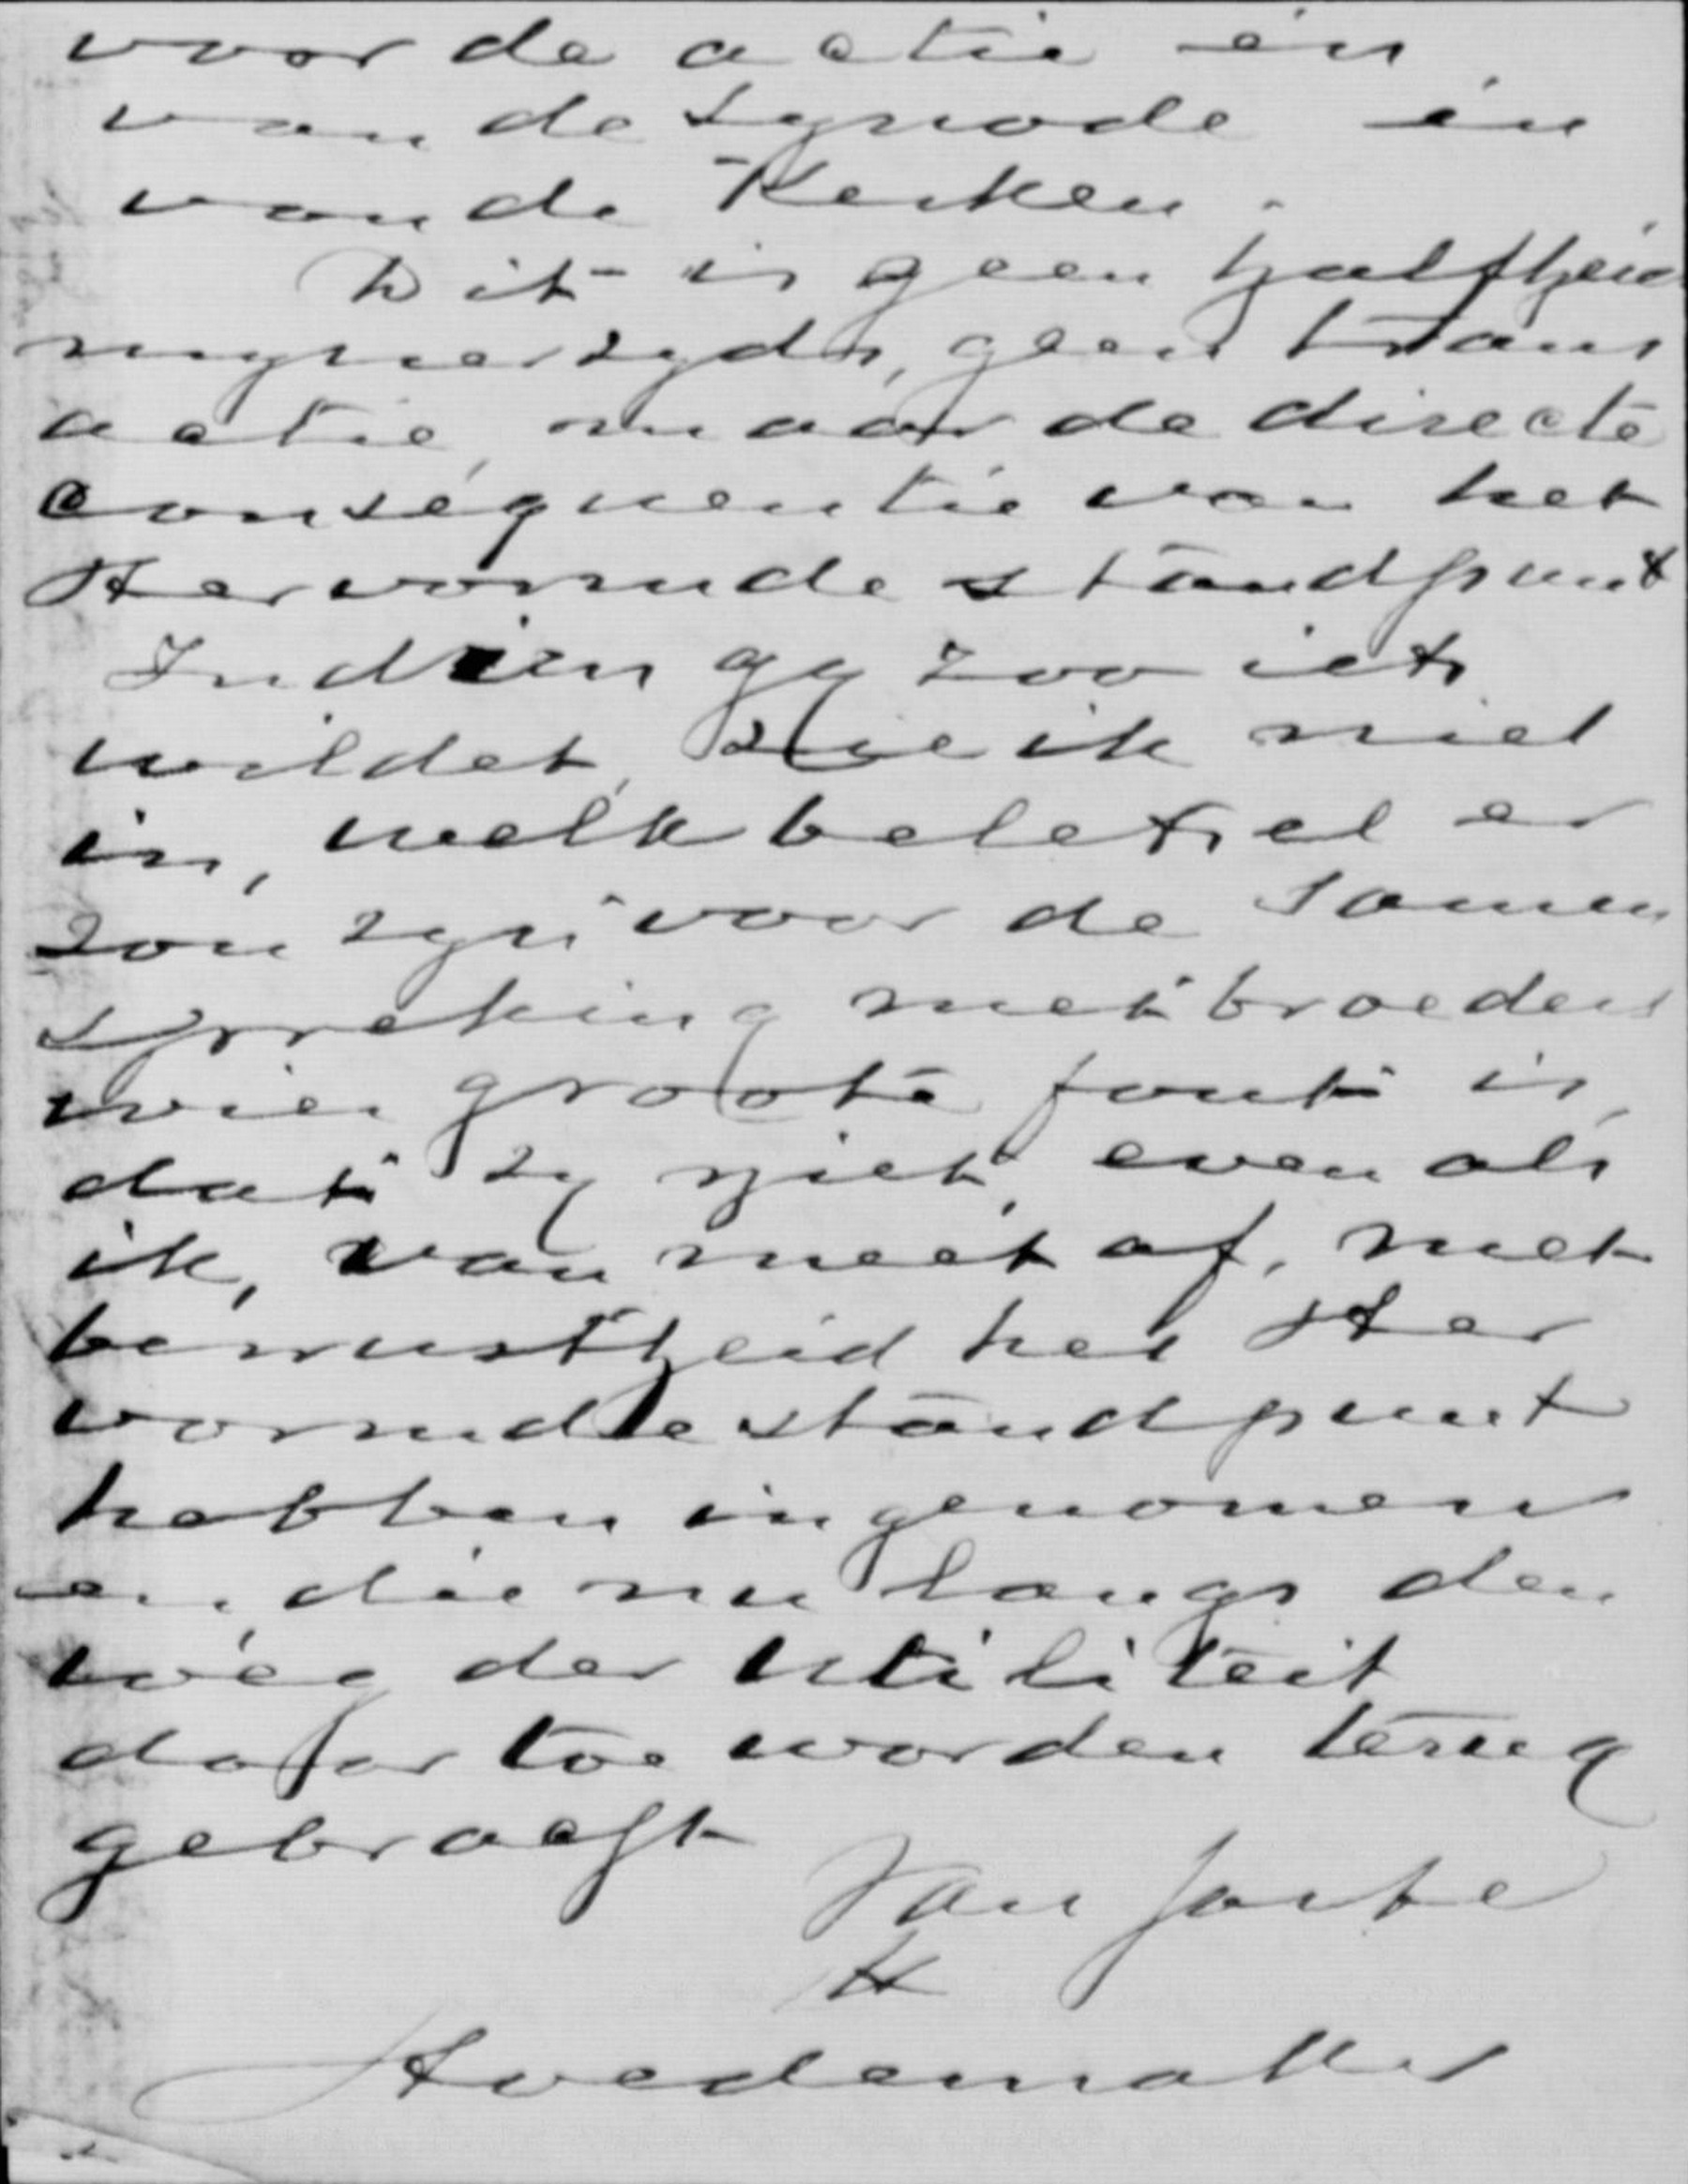 voor de actie én
van de synode én
van de Kerken.
Dit is geen halfheid
mynerzyds, geen trans
actie, maar de directe
consequentie van het
Hervormde standpunt
Indien gy zoo iets
wildet, zie ik niet
in, welk beletsel er
zou zyn voor de samen
spreking met broeders
wier groote fout is,
dat zy niet, even als
ik, van meet af, met
bewustheid het Her
vormde standpunt
hebben ingenomen
en die nu langs den
weg der utiliteit
daartoe worden terug
gebracht
Van harte
tt
Hoedemaker